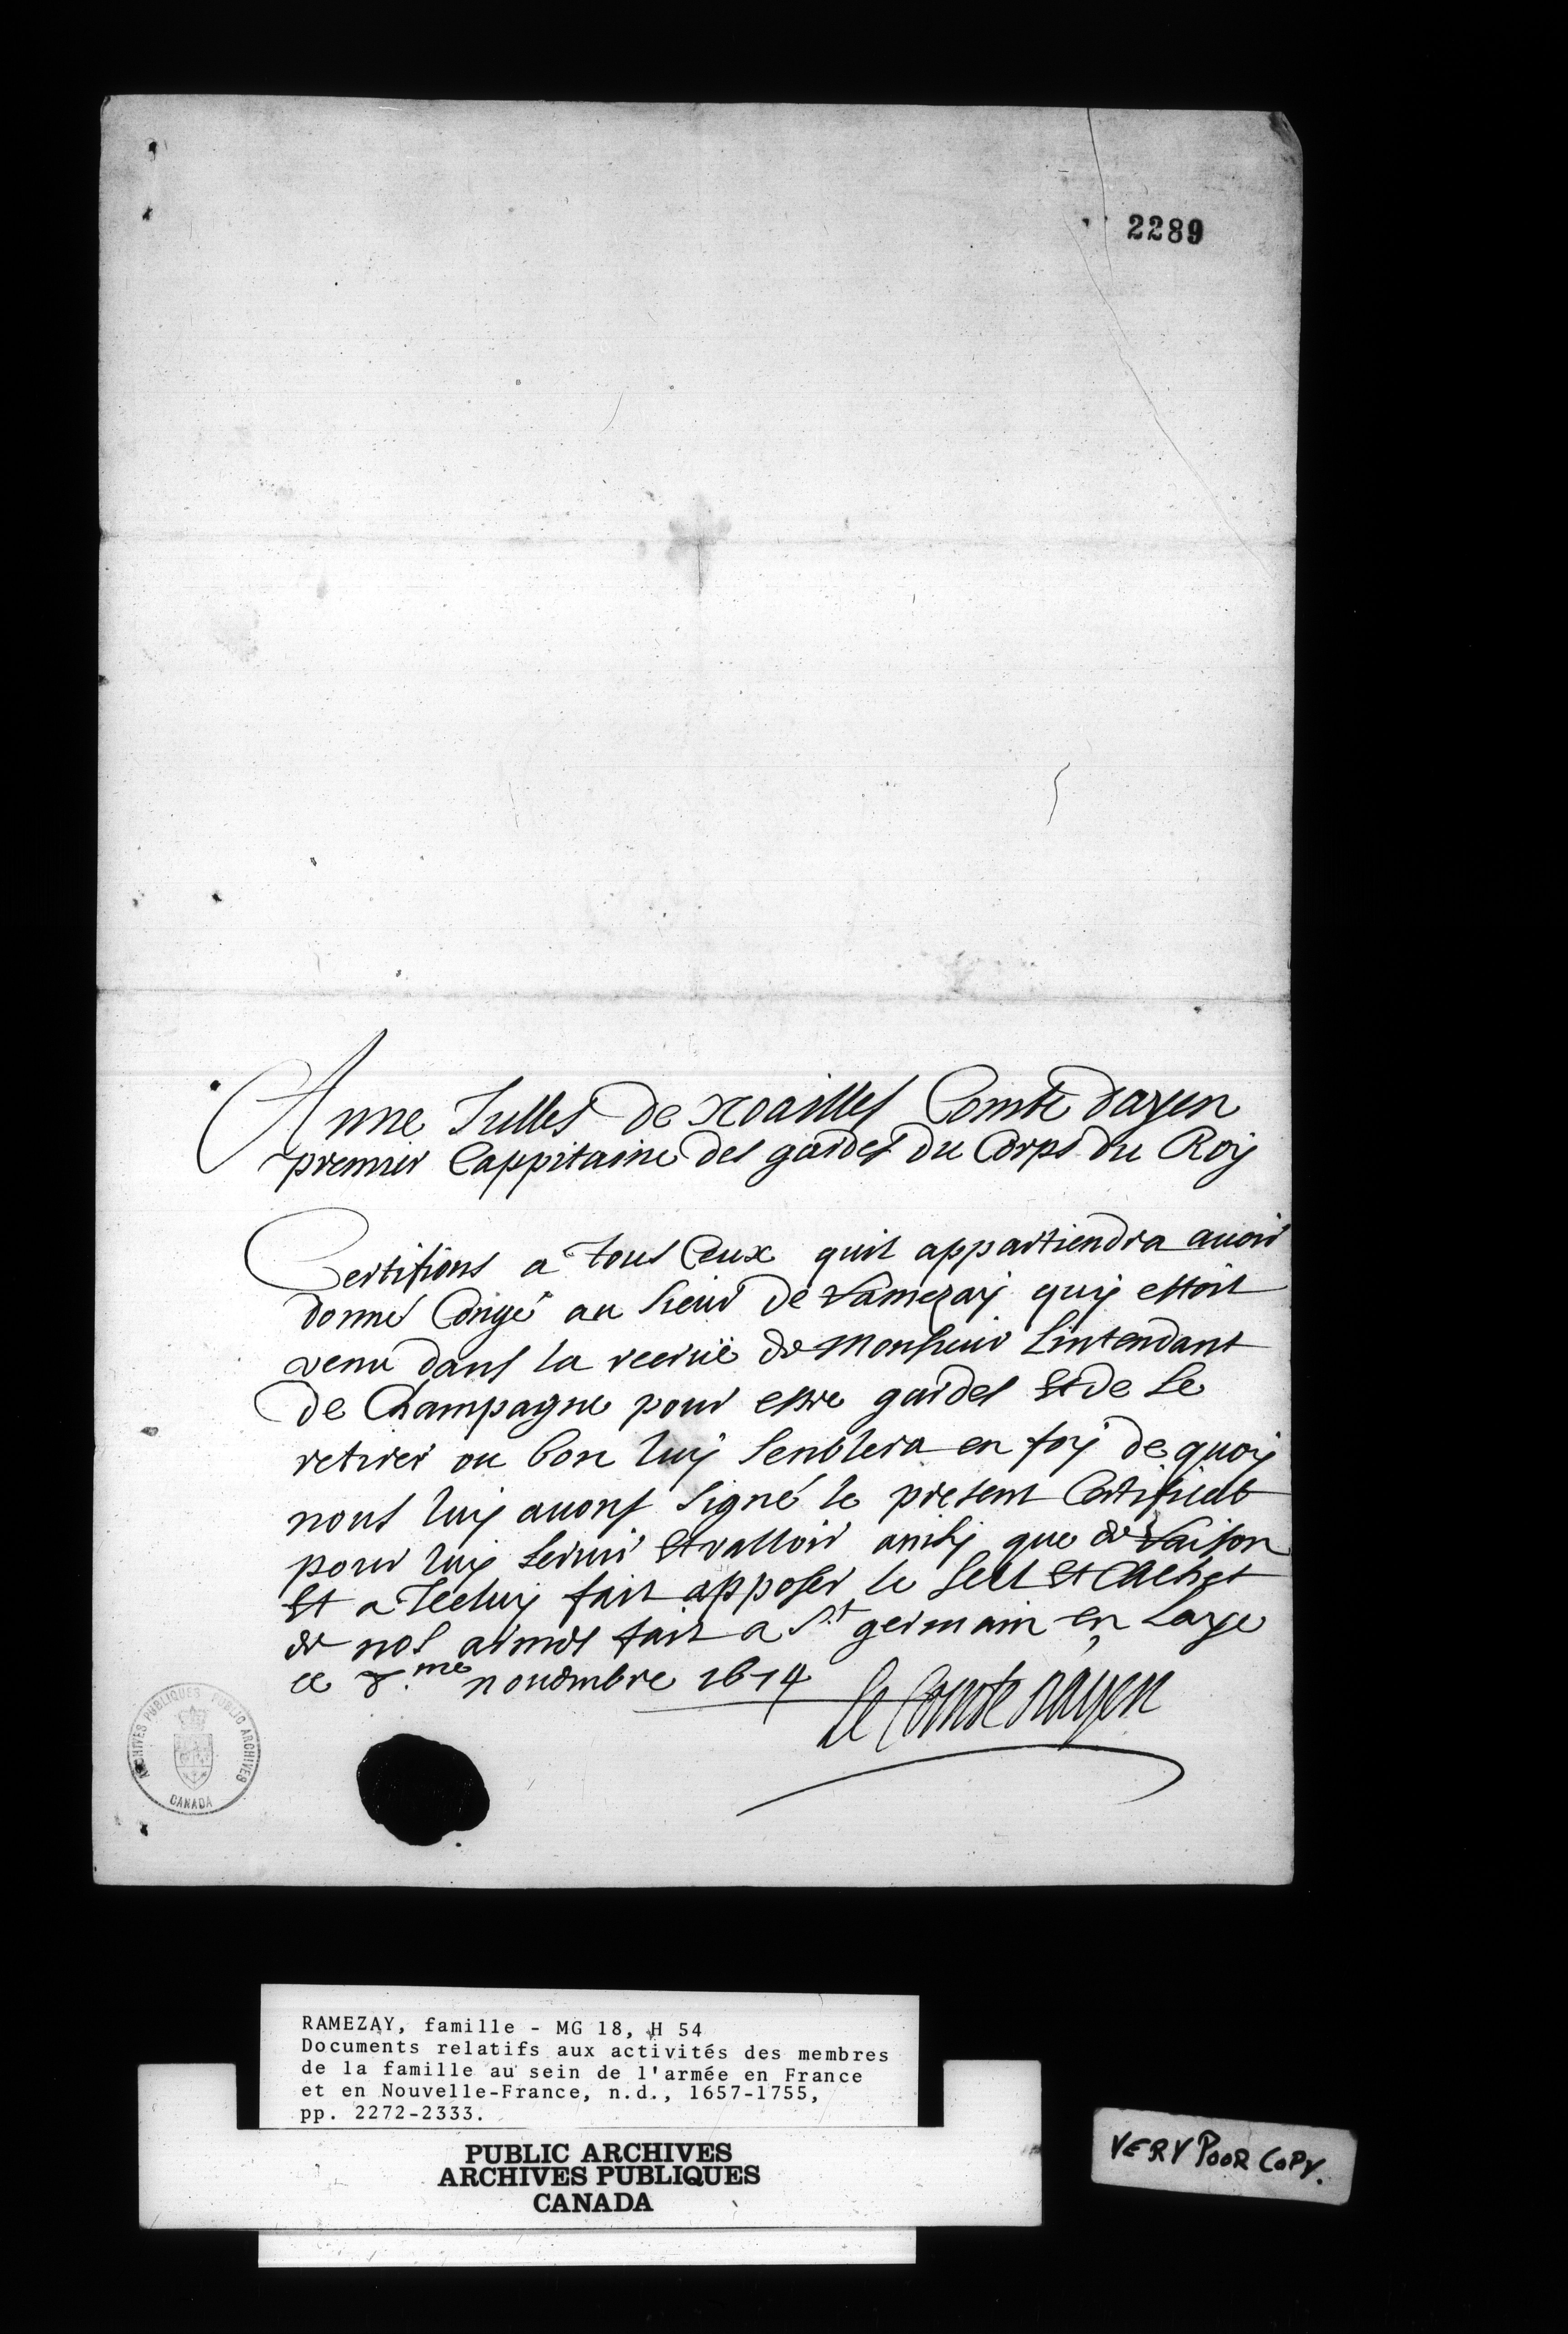 2289
Anne Julles de Noailles Comte dayen
premier Cappitaine des gardes du Corps du Roy
Certifions a tous Ceux quil appartiendra auoir
donné Congé au sieur de Ramezay quy estoit
venu dans la recruë de Monsieur Lintendant
de Champagne pour estre gardes Et de Se
retirer ou bon luy Semblera en foy de quoy
nous luy auons Signé le present Certificat
pour luy Seruir Et valloir ainsy que de Raison
Et a Iceluy fait apposer le Seel Et Cachet
de nos armes fait a St. germain en Laye
ce 8.me nouembre 1674
le Comte dayen
ARCHIVES PUBLIQUES PUBLIC ARCHIVES
CANADA
RAMEZAY, famille - MG 18, H 54
Documents relatifs aux activités des membres
de la famille au sein de l'armée en France
et en Nouvelle-France, n.d., 1657-1755,
pp. 2272-2333.
PUBLIC ARCHIVES
ARCHIVES PUBLIQUES
CANADA
VERY POOR COPY.